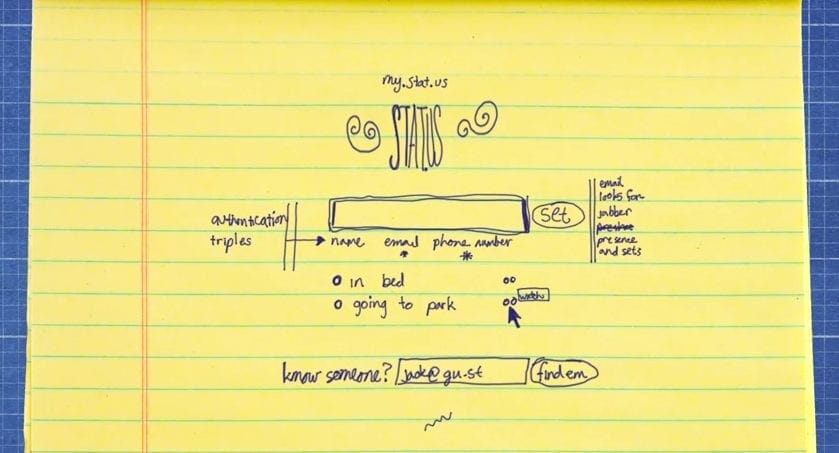 my.stat.us
STATUS
set
authentication
triples
name email phone number
* *
email
looks for
jabber
presence
presence
and sets
in bed
going to park
watch
know someone? jack@gu.st find em